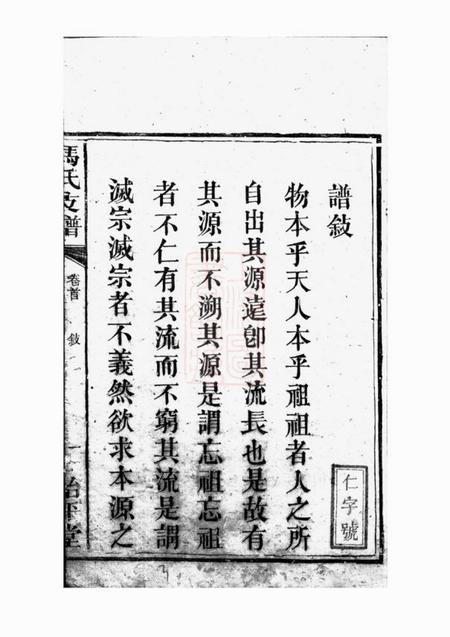 譜敘
物本乎天人本乎祖祖者人之所
自出其源遠卽其流長也是故有
其源而不溯其源是謂忘祖忘祖
者不仁有其流而不窮其流是謂
滅宗滅宗者不義然欲求本源之
仁字號
馬氏支譜
卷首
敘
一
治平堂